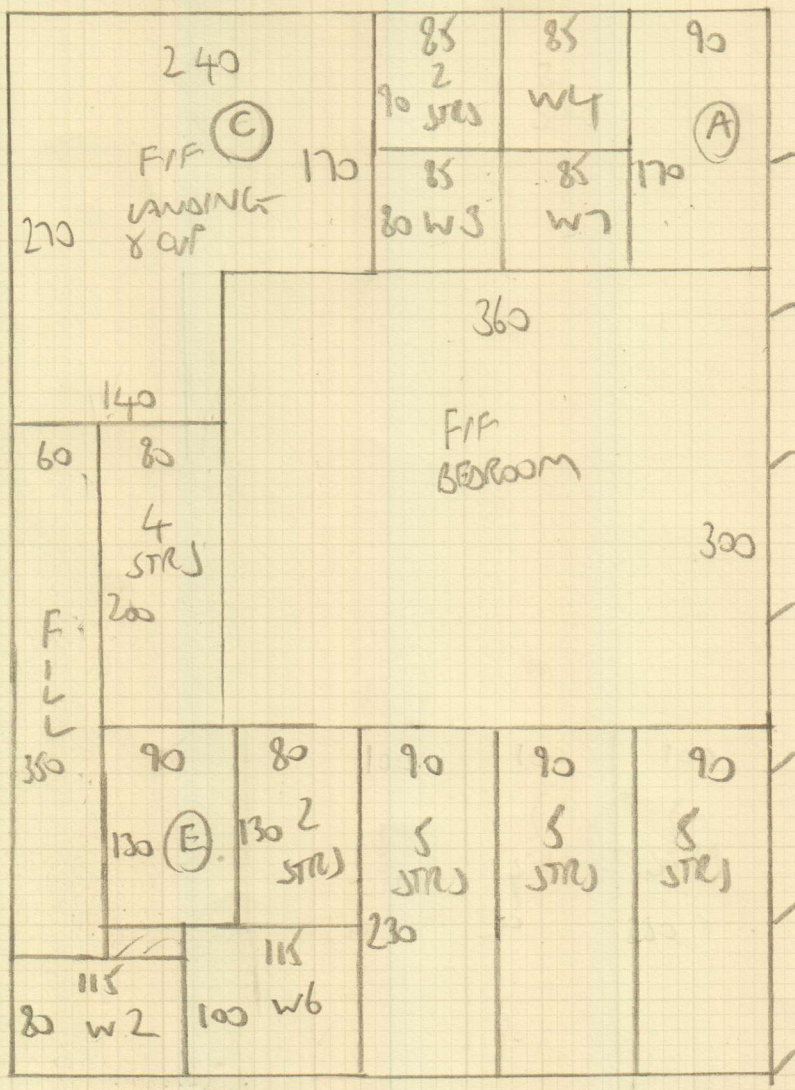 240
C
F/F
LANDING
& CUP
170
270
140
85
2
90 STRS
85
W4
90
A
170
85
80 W3
85
W7
360
F/F
BEDROOM
300
60
80
4
STRS
200
FILL
350
90
130 E
80
130 2
STRS
90
5
STRS
230
90
5
STRS
90
5
STRS
115
80 W2
115
100 W6